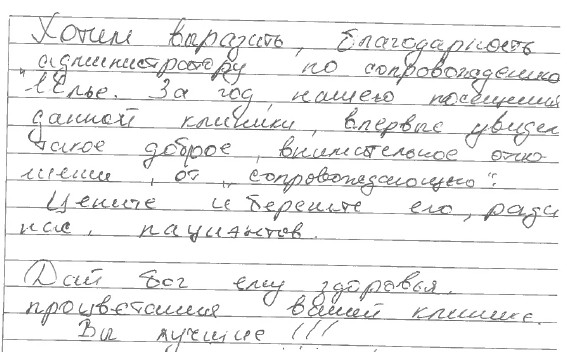 Хотим выразить, благодарность
администратору по сопровождению
Илье. За год, нашего посещения
данной клиники, впервые увидел
такое доброе, внимательное отно-
шение, от „сопровождающего“.
Цените и берегите его, ради
нас, пациентов.
Дай Бог ему здоровья.
процветания вашей клинике.
Вы лучшие !!!